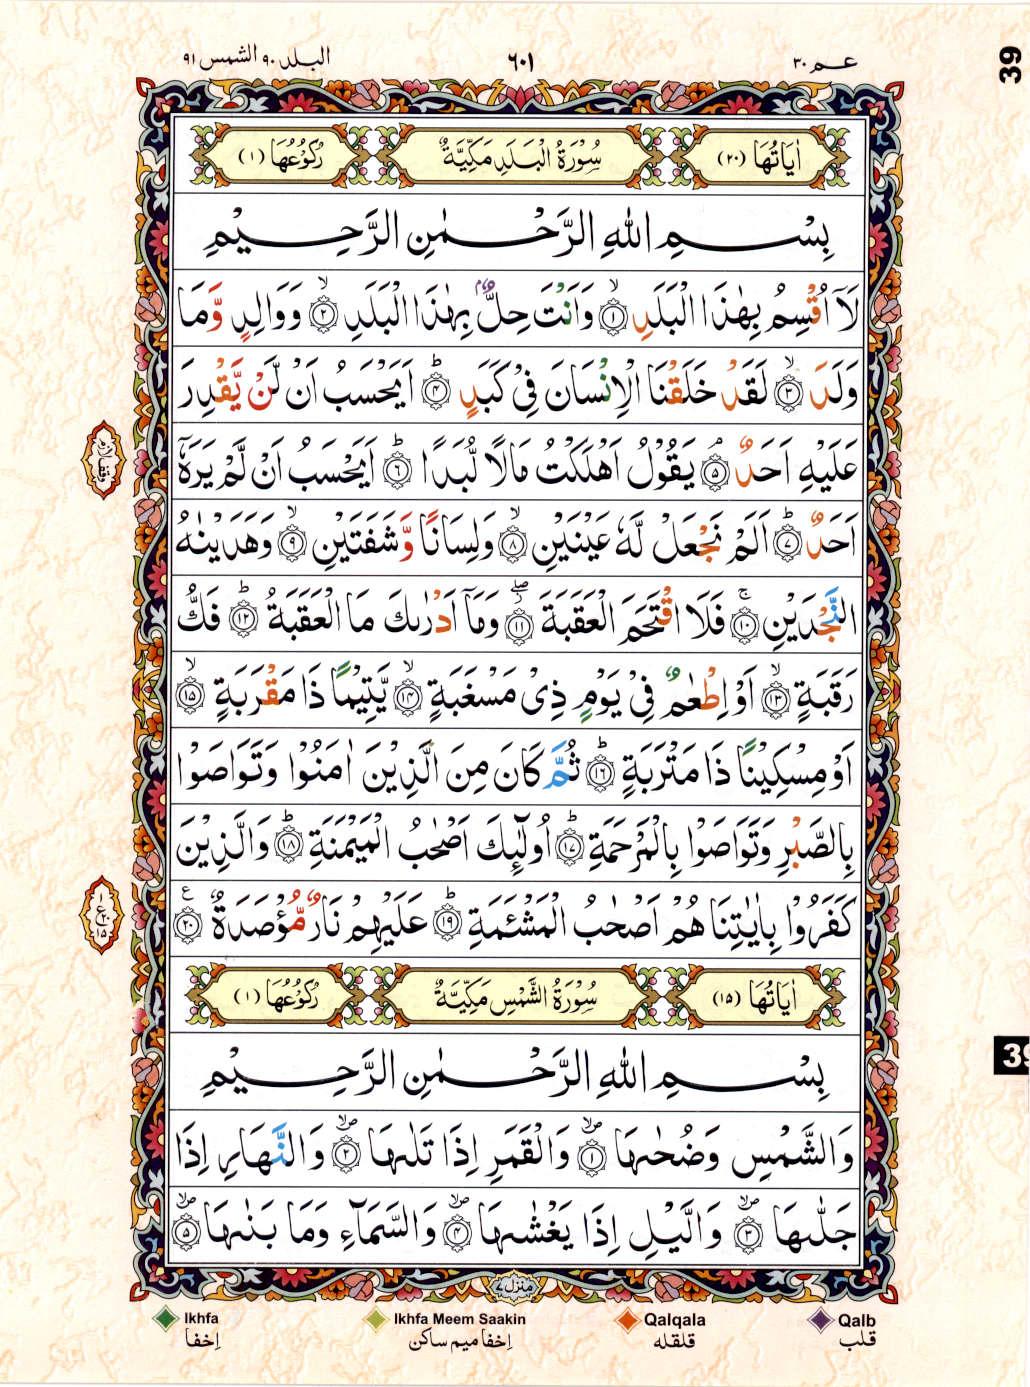 عم ٣٠
٦٠١
البلد ٩٠ الشمس ٩١
39
اٰيَاتُهَا (٢٠)
سُوْرَةُ الْبَلَدِ مَكِّيَّةٌ
رُكُوْعُهَا (١)
بِسْمِ اللهِ الرَّحْمٰنِ الرَّحِيْمِ
لَآ اُقْسِمُ بِهٰذَا الْبَلَدِ ۙ ١ وَاَنْتَ حِلٌّۢ بِهٰذَا الْبَلَدِ ۙ ٢ وَوَالِدٍ وَّمَا
وَلَدَ ۙ ٣ لَقَدْ خَلَقْنَا الْاِنْسَانَ فِيْ كَبَدٍ ؕ ٤ اَيَحْسَبُ اَنْ لَّنْ يَّقْدِرَ
عَلَيْهِ اَحَدٌ ۘ ٥ يَقُوْلُ اَهْلَكْتُ مَالًا لُّبَدًا ؕ ٦ اَيَحْسَبُ اَنْ لَّمْ يَرَهٗۤ
اَحَدٌ ؕ ٧ اَلَمْ نَجْعَلْ لَّهٗ عَيْنَيْنِ ۙ ٨ وَلِسَانًا وَّشَفَتَيْنِ ۙ ٩ وَهَدَيْنٰهُ
النَّجْدَيْنِ ۚ ١٠ فَلَا اقْتَحَمَ الْعَقَبَةَ ۖ ١١ وَمَآ اَدْرٰىكَ مَا الْعَقَبَةُ ؕ ١٢ فَكُّ
رَقَبَةٍ ۙ ١٣ اَوْ اِطْعٰمٌ فِيْ يَوْمٍ ذِيْ مَسْغَبَةٍ ۙ ١٤ يَّتِيْمًا ذَا مَقْرَبَةٍ ۙ ١٥
اَوْ مِسْكِيْنًا ذَا مَتْرَبَةٍ ؕ ١٦ ثُمَّ كَانَ مِنَ الَّذِيْنَ اٰمَنُوْا وَتَوَاصَوْا
بِالصَّبْرِ وَتَوَاصَوْا بِالْمَرْحَمَةِ ؕ ١٧ اُولٰٓئِكَ اَصْحٰبُ الْمَيْمَنَةِ ؕ ١٨ وَالَّذِيْنَ
كَفَرُوْا بِاٰيٰتِنَا هُمْ اَصْحٰبُ الْمَشْئَمَةِ ؕ ١٩ عَلَيْهِمْ نَارٌ مُّؤْصَدَةٌ ٢٠ ع
وقف لازم
ع
١
٢٠
١٥
اٰيَاتُهَا (١٥)
سُوْرَةُ الشَّمْسِ مَكِّيَّةٌ
رُكُوْعُهَا (١)
بِسْمِ اللهِ الرَّحْمٰنِ الرَّحِيْمِ
وَالشَّمْسِ وَضُحٰىهَا ١ وَالْقَمَرِ اِذَا تَلٰىهَا ٢ وَالنَّهَارِ اِذَا
جَلّٰىهَا ٣ وَالَّيْلِ اِذَا يَغْشٰىهَا ٤ وَالسَّمَآءِ وَمَا بَنٰىهَا ٥
39
منزل ٧
Ikhfa
اِخفا
Ikhfa Meem Saakin
اِخفا میم ساکن
Qalqala
قلقله
Qalb
قلب